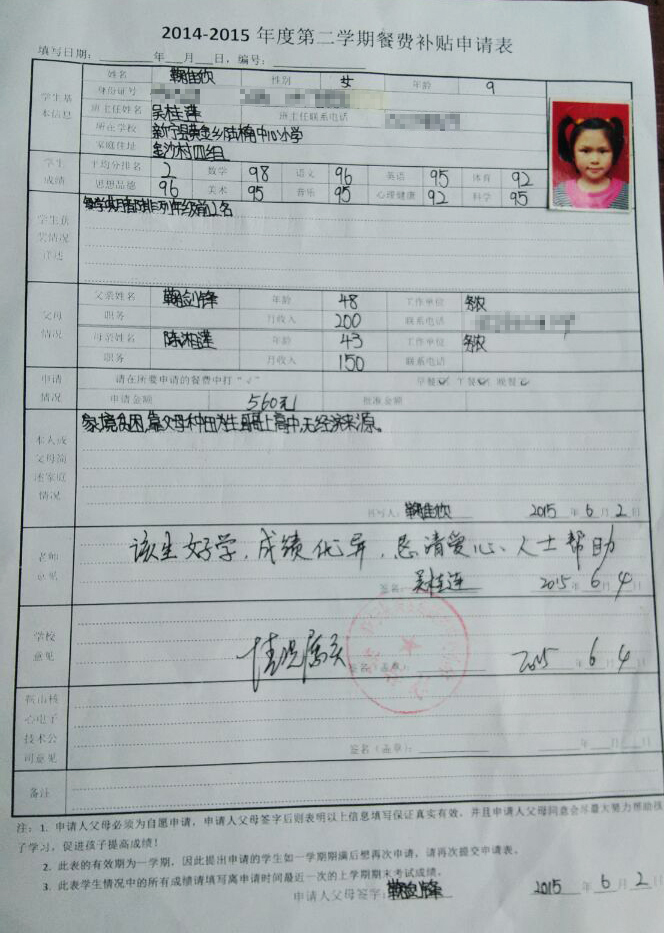 2014-2015 年度第二学期餐费补贴申请表
填写日期: 年 月 日, 编号:
姓名 鞠佳欣 性别 女 年龄 9
身份证号
班主任姓名 吴桂莲 班主任联系电话
所在学校 新宁县黄金乡陡楠中心小学
家庭住址 金沙村四组
学生基本信息
学生成绩
平均分排名 2 数学 98 语文 96 英语 95 体育 92
思想品德 96 美术 95 音乐 95 心理健康 92 科学 95
学生获奖情况详述
每学期都排列年级前2名
父母情况
父亲姓名 鞠剑锋 年龄 48 工作单位 务农
职务 月收入 200 联系电话
母亲姓名 陈湘莲 年龄 43 工作单位 务农
职务 月收入 150 联系电话
申请情况
请在所要申请的餐费中打“√” 早餐☑, 午餐☑, 晚餐☑
申请金额 560元 批准金额
本人或父母简述家庭情况
家境贫困,靠父母种田为生哥哥上高中,无经济来源。
书写人: 鞠佳欣 2015 年 6 月 2 日
老师意见
该生好学,成绩优异,恳请爱心人士帮助
签名: 吴桂连 2015 6 4
学校意见
情况属实
签名(盖章): 2015 6 4
技术公司意见
签名(盖章): 年 月 日
备注
注: 1. 申请人父母必须为自愿申请, 申请人父母签字后则表明以上信息填写保证真实有效, 并且申请人父母同意会尽最大努力帮助孩
子学习, 促进孩子提高成绩!
2. 此表的有效期为一学期, 因此提出申请的学生如一学期期满后想再次申请, 请再次提交申请表。
3. 此表学生情况中的所有成绩请填写离申请时间最近一次的上学期期末考试成绩。
申请人父母签字: 鞠剑锋 2015 年 6 月 2 日